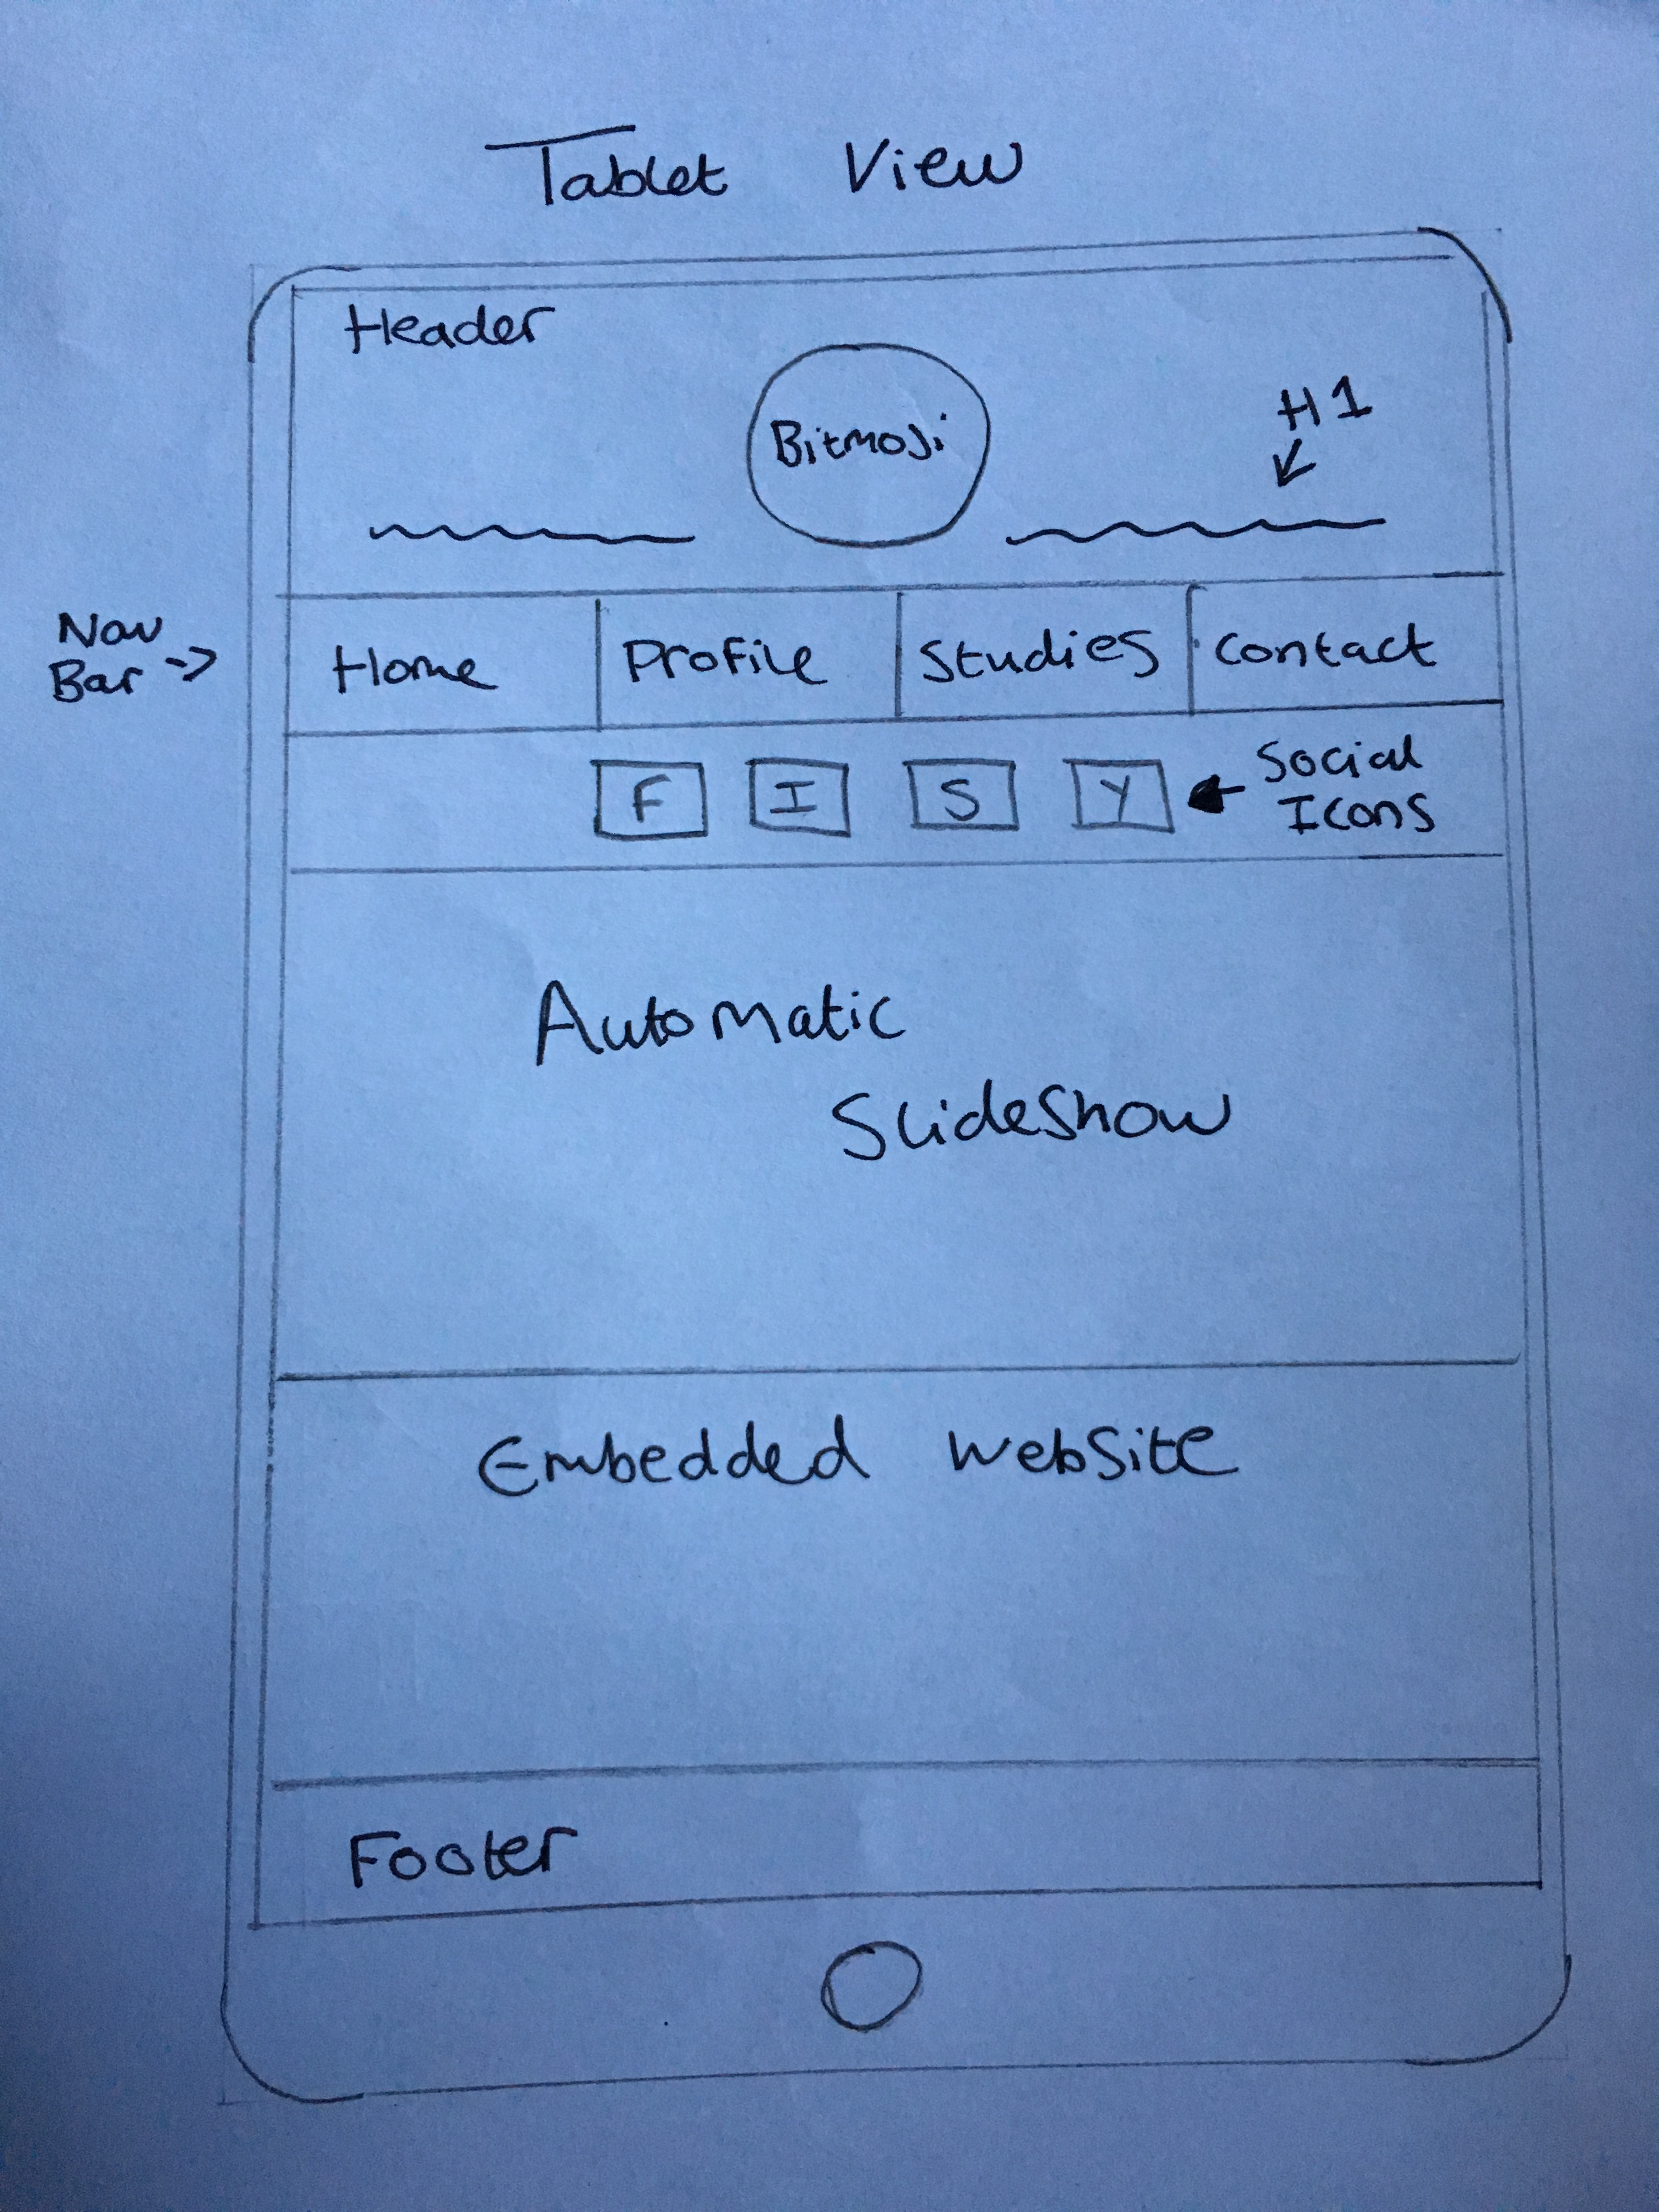 Tablet View
Header
H1
Bitmoji
Nav
Bar ->
Home Profile Studies Contact
F I S Y
Social
Icons
Automatic
Slideshow
Embedded Website
Footer